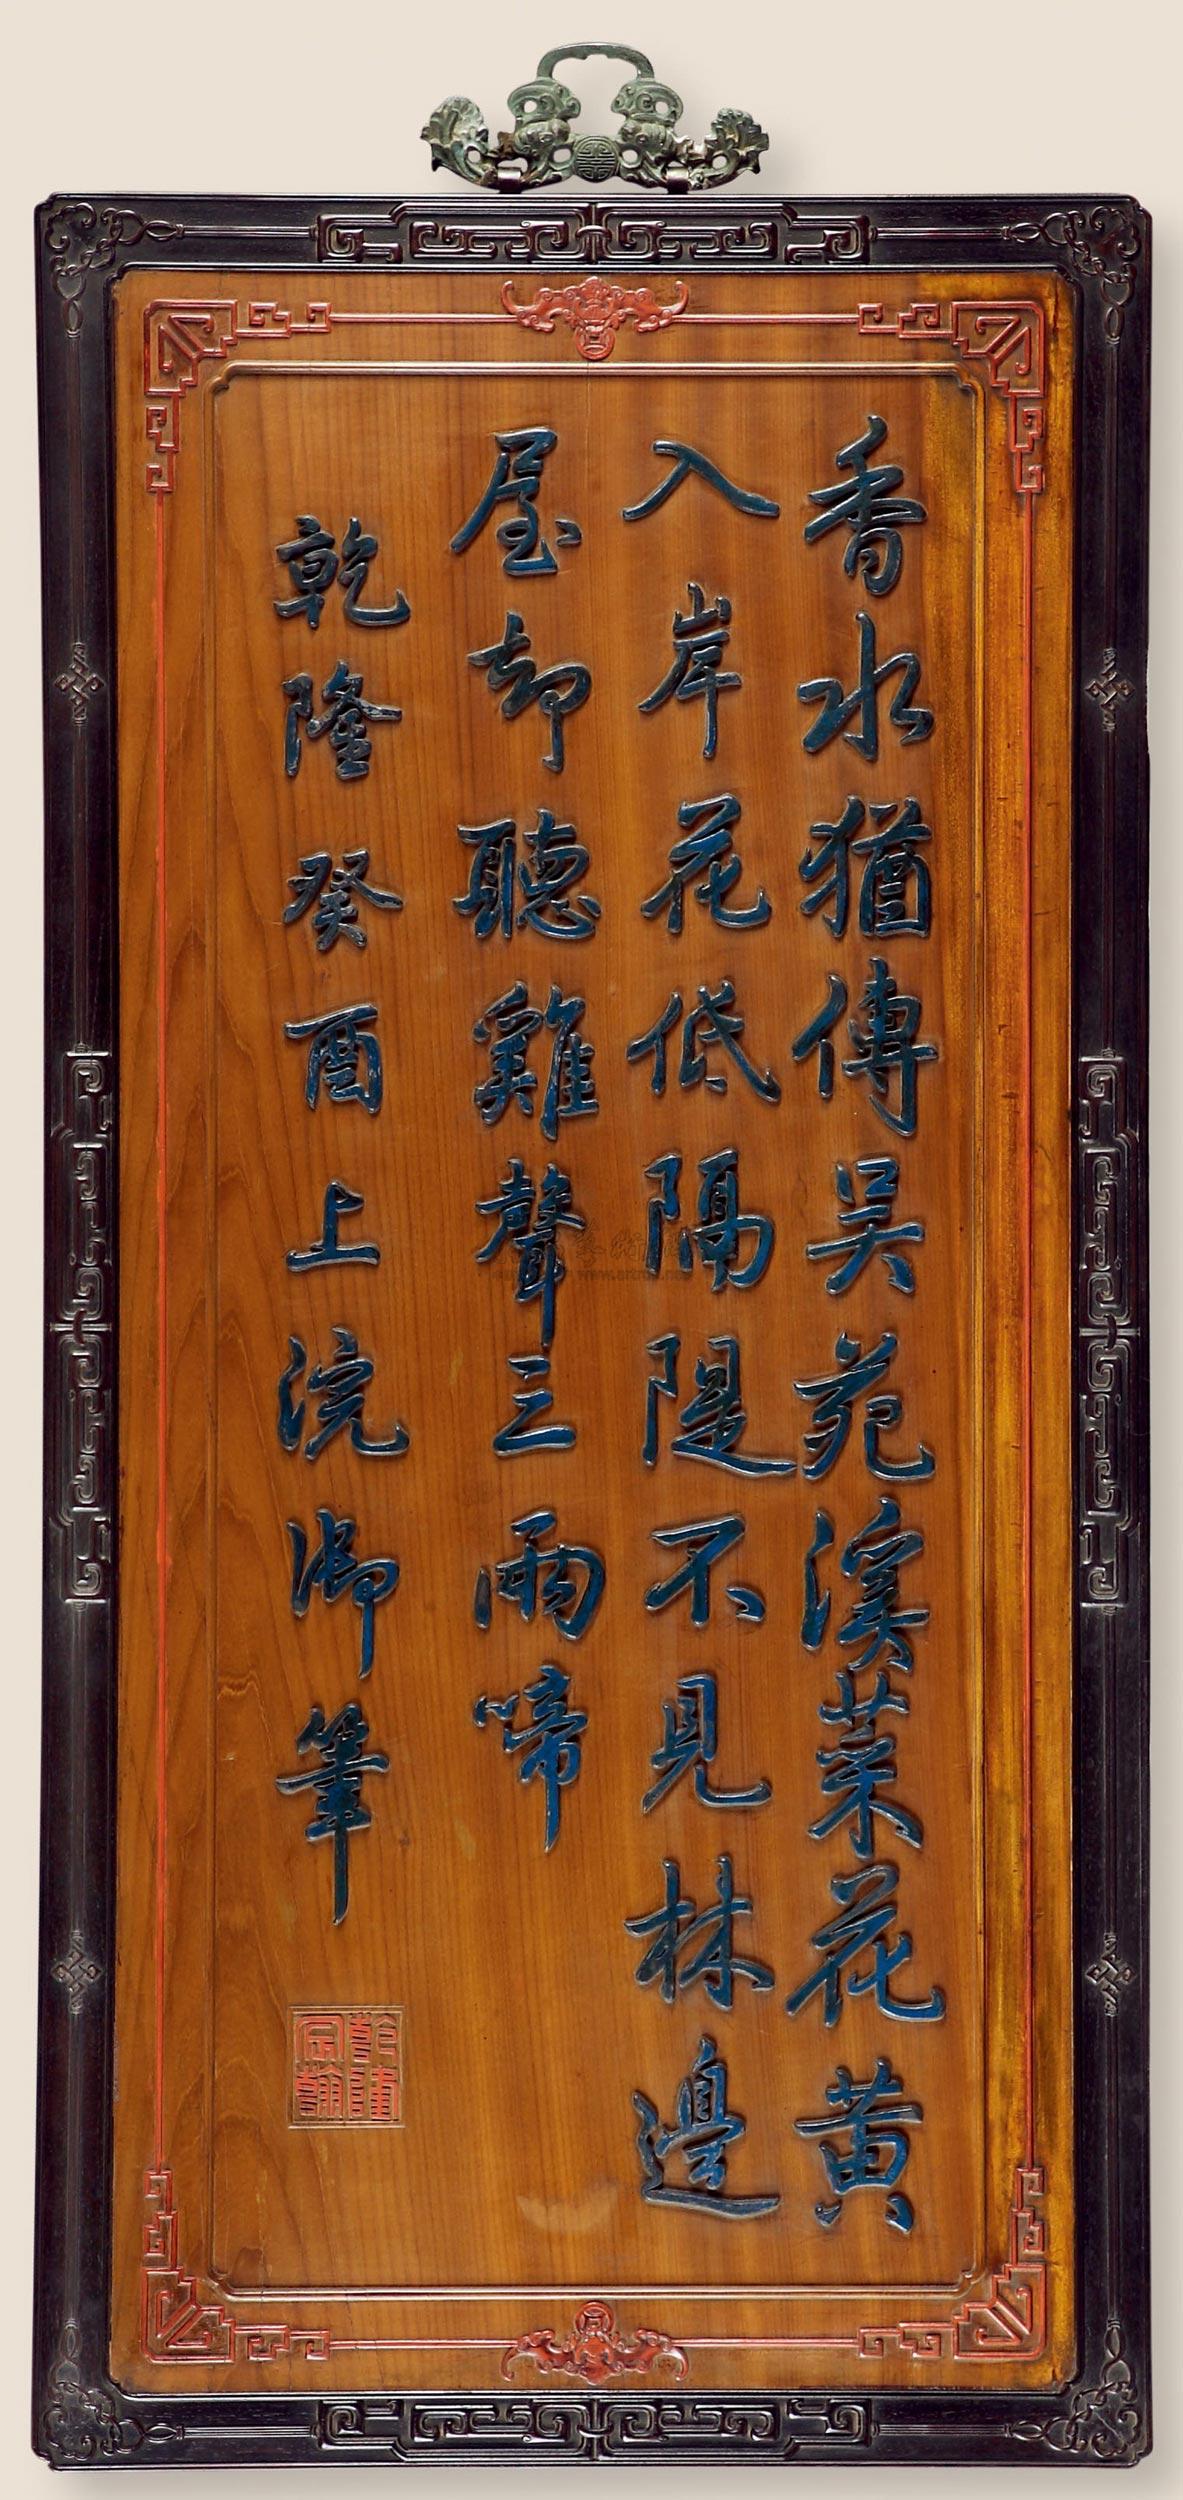 香水猶傳吳苑溪菜花黃
入岸花低隔隄不見林邊
屋却聽雞聲三兩啼
乾隆癸酉上浣御筆
乾隆宸翰